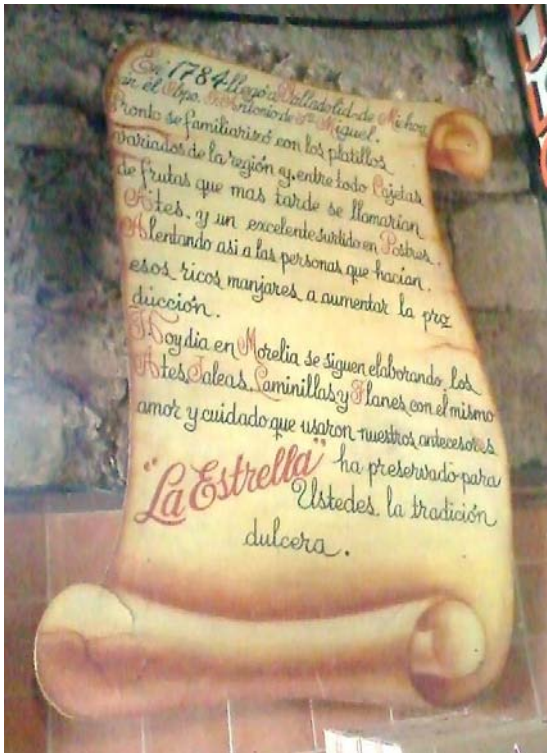 En 1784 llegó a Valladolid de Michoa
cán el Obpo. Fr. Antonio de Sn. Miguel.
Pronto se familiarizó con los platillos
variados de la región y, entre todo Cajetas
de frutas que mas tarde se llamarían
Ates. y un excelente surtido en Postres.
Alentando asi a las personas que hacían.
esos ricos manjares a aumentar la pro
ducción.
Hoy dia en Morelia se siguen elaborando los
Ates, Jaleas, Laminillas y Flanes, con el mismo
amor y cuidado que usaron nuestros antecesores
"La Estrella" ha preservado para
Ustedes. la tradición
dulcera.